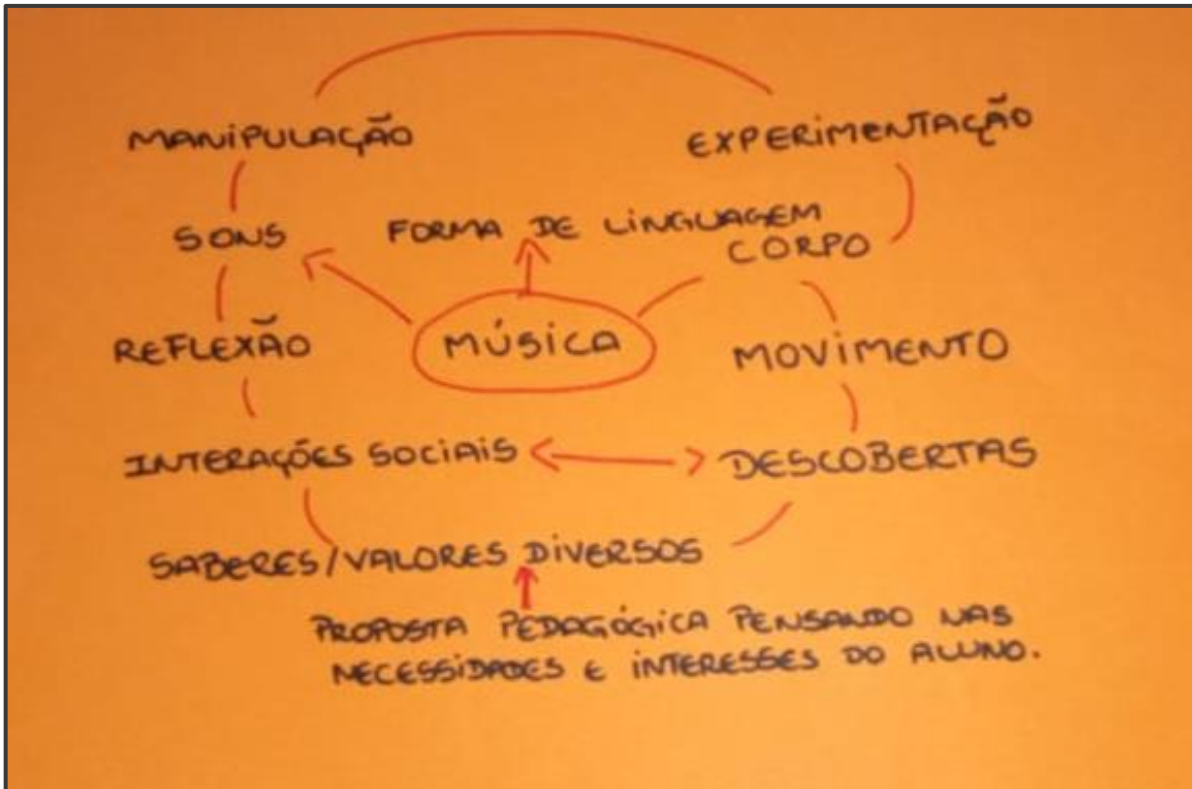 MANIPULAÇÃO
EXPERIMENTAÇÃO
SONS
FORMA DE LINGUAGEM
CORPO
REFLEXÃO
MÚSICA
MOVIMENTO
INTERAÇÕES SOCIAIS
DESCOBERTAS
SABERES/VALORES DIVERSOS
PROPOSTA PEDAGÓGICA PENSANDO NAS
NECESSIDADES E INTERESSES DO ALUNO.